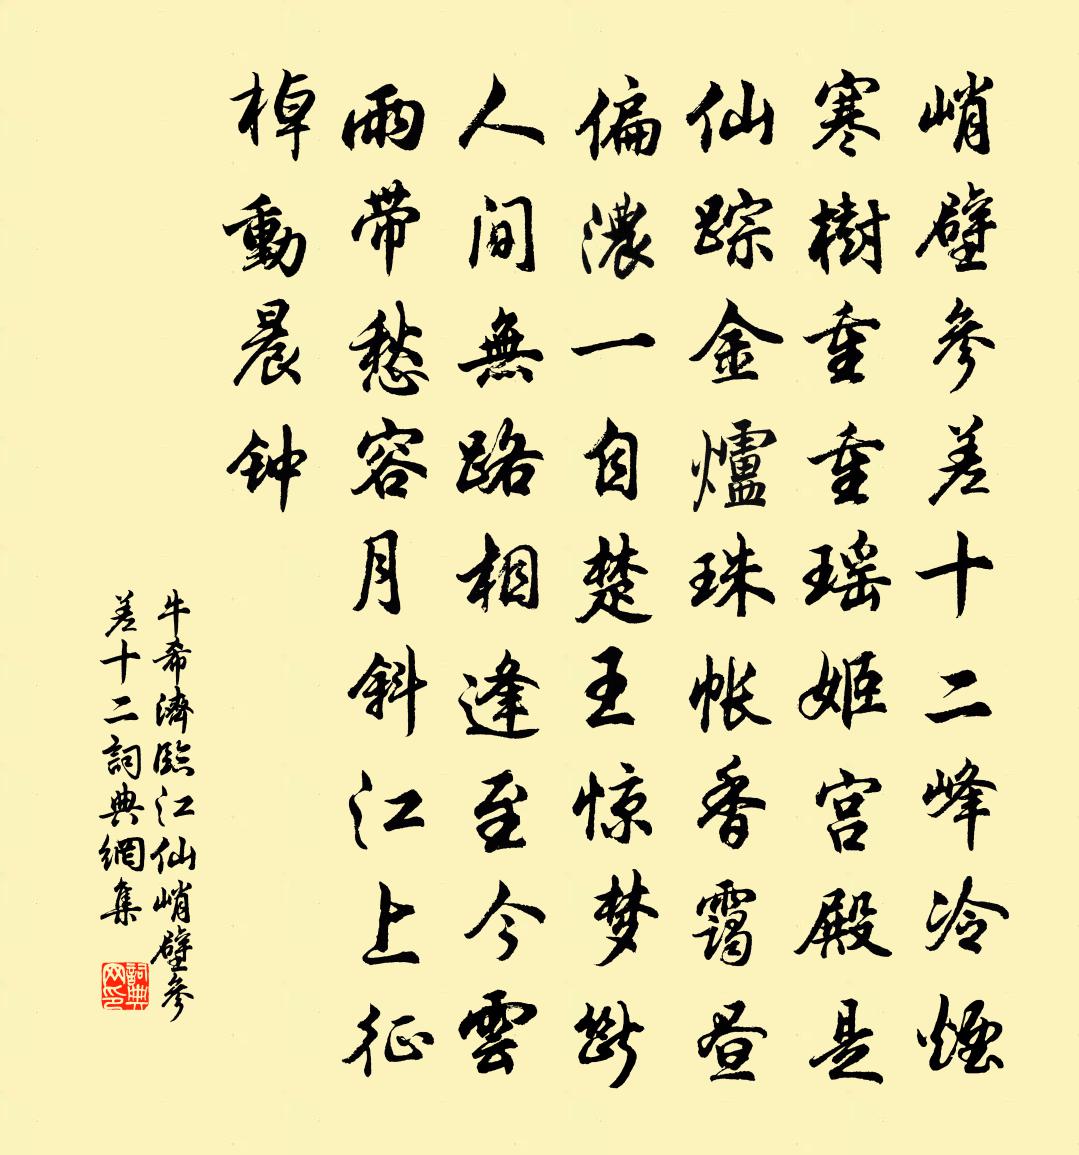 峭壁參差十二峰冷煙
寒樹重重瑶姬宫殿是
仙踪金爐珠帐香靄昼
偏濃一自楚王惊梦斷
人間無路相逢至今雲
雨带愁容月斜江上征
棹動晨钟
牛希濟臨江仙峭壁參
差十二詞典網集
詞典网印